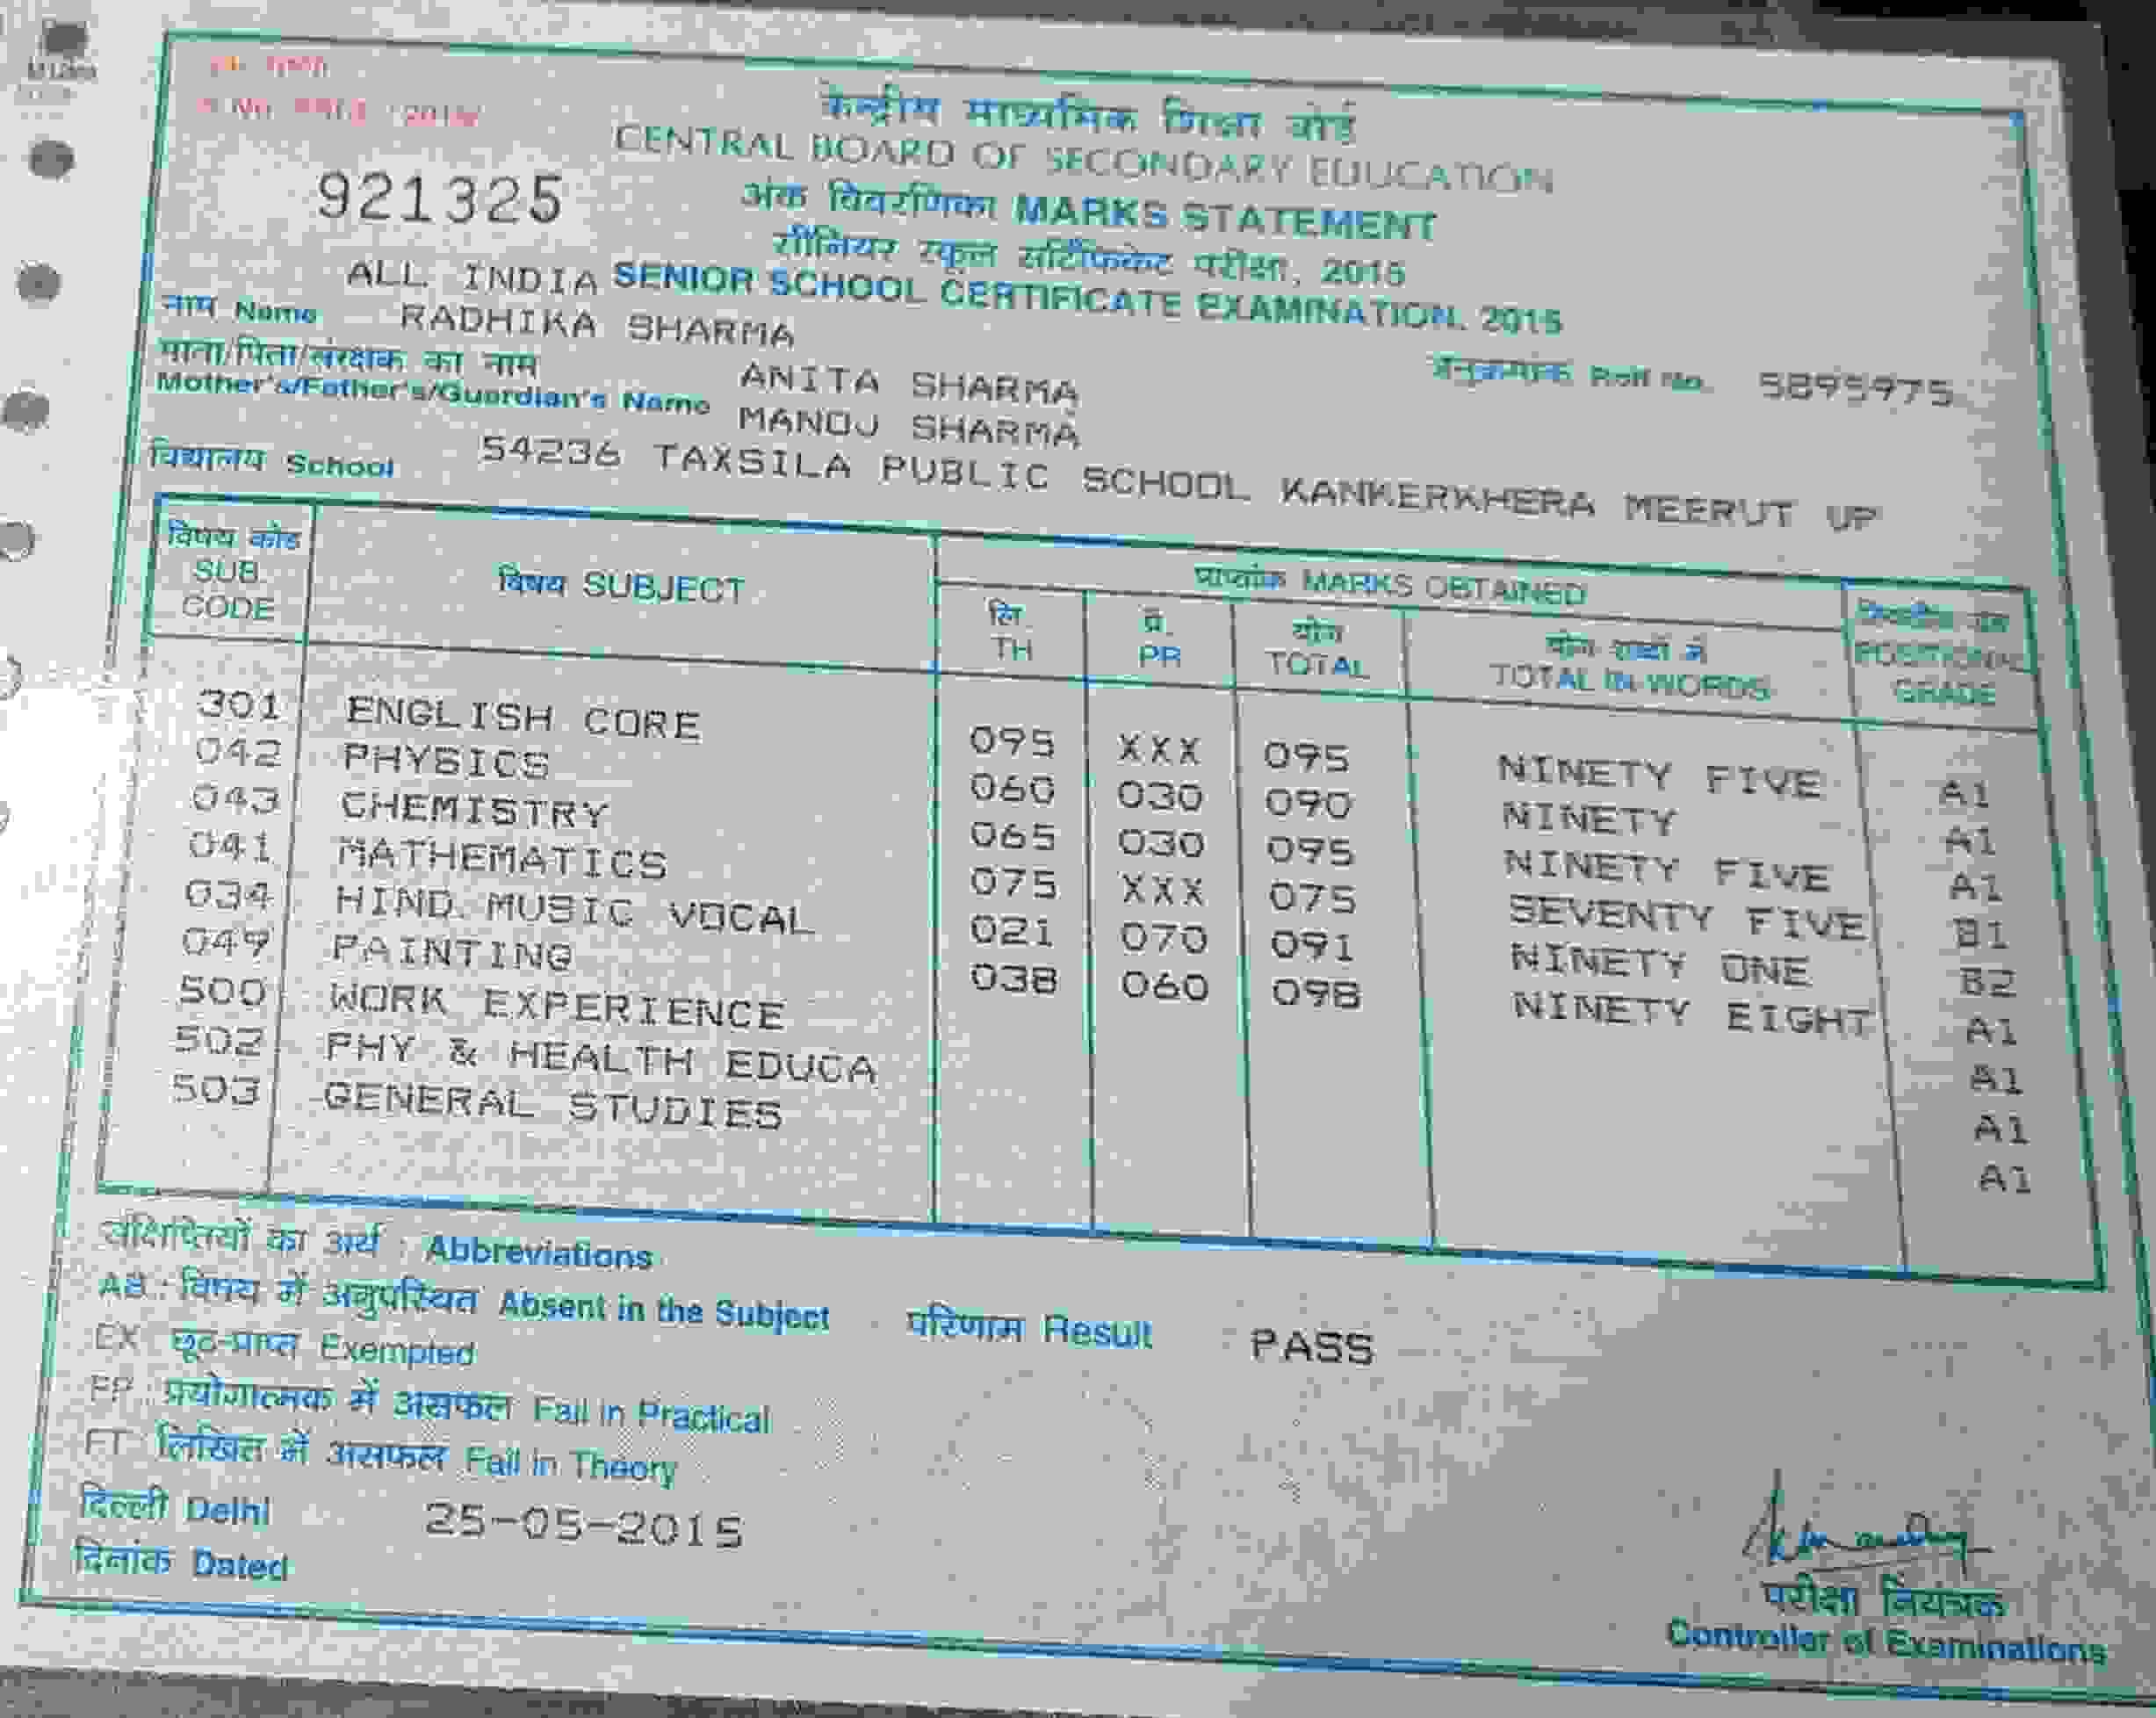 केन्द्रीय माध्यमिक शिक्षा बोर्ड
CENTRAL BOARD OF SECONDARY EDUCATION
921325
अंक विवरणिका MARKS STATEMENT
सीनियर स्कूल सर्टिफिकेट परीक्षा, 2015
ALL INDIA SENIOR SCHOOL CERTIFICATE EXAMINATION, 2015
नाम Name RADHIKA SHARMA
अनुक्रमांक Roll No. 5895975
माता/पिता/संरक्षक का नाम ANITA SHARMA
Mother's/Father's/Guardian's Name MANOJ SHARMA
विद्यालय School 54236 TAXSILA PUBLIC SCHOOL KANKERKHERA MEERUT UP
विषय कोड SUB. CODE विषय SUBJECT प्राप्तांक MARKS OBTAINED POSITIONAL GRADE
लि. TH प्र. PR योग TOTAL योग शब्दों में TOTAL IN WORDS
301 ENGLISH CORE 095 XXX 095 NINETY FIVE A1
042 PHYSICS 060 030 090 NINETY A1
043 CHEMISTRY 065 030 095 NINETY FIVE A1
041 MATHEMATICS 075 XXX 075 SEVENTY FIVE B1
034 HIND. MUSIC VOCAL 021 070 091 NINETY ONE B2
049 PAINTING 038 060 098 NINETY EIGHT A1
500 WORK EXPERIENCE A1
502 PHY & HEALTH EDUCA A1
503 GENERAL STUDIES A1
संक्षिप्तियों का अर्थ : Abbreviations
AB : विषय में अनुपस्थित Absent in the Subject परिणाम Result PASS
EX : छूट-प्राप्त Exempted
FP : प्रयोगात्मक में असफल Fail in Practical
FT : लिखित में असफल Fail in Theory
दिल्ली Delhi 25-05-2015
दिनांक Dated
परीक्षा नियंत्रक
Controller of Examinations